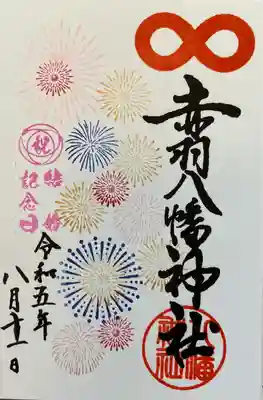 赤羽八幡神社
祝
結婚
記念日
令和五年
八月十一日